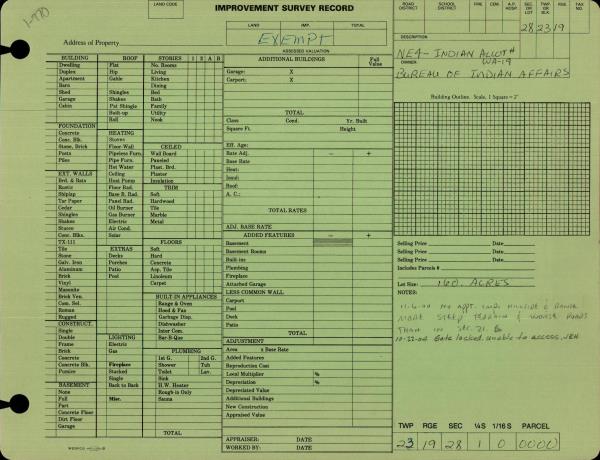 1-970
LAND CODE
IMPROVEMENT SURVEY RECORD
ROAD DISTRICT
SCHOOL DISTRICT
FIRE
CEM.
A.P. HOSP.
SEC. OR LOT
TWP. OR BLK.
RGE
TAX NO.
28 23 19
LAND IMP. TOTAL
EXEMPT
ASSESSED VALUATION
Address of Property
DESCRIPTION
NE4 - INDIAN ALLOT #
WA-19
OWNER
BUREAU OF INDIAN AFFAIRS
Building Outline. Scale, 1 Square = 2'
BUILDING
Dwelling
Duplex
Apartment
Barn
Shed
Garage
Cabin
FOUNDATION
Concrete
Conc. Blk.
Stone, Brick
Posts
Piles
EXT. WALLS
Brd. & Bats
Rustic
Shiplap
Tar Paper
Cedar
Shingles
Shakes
Stucco
Conc. Blks.
TX-111
Tile
Stone
Galv. Iron
Aluminum
Brick
Vinyl
Masonite
Brick Ven.
Com. Sel.
Roman
Rugged
CONSTRUCT.
Single
Double
Frame
Brick
Concrete
Concrete Blk.
Pumice
BASEMENT
None
Full
Part
Concrete Floor
Dirt Floor
Garage
ROOF
Flat
Hip
Gable
Shingles
Shakes
Pat Shingle
Built-up
Roll
HEATING
Stoves
Floor-Wall
Pipeless Furn.
Pipe Furn.
Hot Water
Ceiling
Heat Pump
Floor Rad.
Base B. Rad.
Panel Rad.
Oil Burner
Gas Burner
Electric
Air Cond.
Solar
EXTRAS
Decks
Porches
Patio
Pool
LIGHTING
Electric
Gas
Fireplace
Stacked
Single
Back to Back
Misc.
STORIES 1 2 A B
No. Rooms
Living
Kitchen
Dining
Bed
Bath
Family
Utility
Nook
CEILED
Wall Board
Paneled
Plast. Brd.
Plaster
Insulation
TRIM
Soft
Hardwood
Tile
Marble
Metal
FLOORS
Soft
Hard
Concrete
Asp. Tile
Linoleum
Carpet
BUILT-IN APPLIANCES
Range & Oven
Hood & Fan
Garbage Disp.
Dishwasher
Inter Com.
Bar-B-Que
PLUMBING
1st G. 2nd G.
Shower Tub
Toilet Lav.
Sink
H.W. Heater
Rough-in Only
Sauna
TOTAL
ADDITIONAL BUILDINGS
Full Value
Garage: X
Carport: X
TOTAL
Class Cond. Yr. Built
Square Ft. Height
Eff. Age:
Rate Adj. — +
Base Rate
Heat:
Insul:
Roof:
A. C.:
TOTAL RATES
ADJ. BASE RATE
ADDED FEATURES — +
Basement
Basement Rooms
Built-ins
Plumbing
Fireplace
Attached Garage
LESS COMMON WALL
Carport
Pool
Deck
Patio
TOTAL
ADJUSTMENT
Area x Base Rate
Added Features
Reproduction Cost
Local Multiplier %
Depreciation %
Depreciated Value
Additional Buildings
New Construction
Appraised Value
APPRAISER: DATE
WORKED BY: DATE
Selling Price Date
Selling Price Date
Selling Price Date
Includes Parcels #
Lot Size: 160. ACRES
NOTES:
MORE STEEP
THAN IN
10-22-04 Gate locked, unable to access. JEH
TWP RGE SEC ¼S 1/16 S PARCEL
23 19 28 1 0 0000